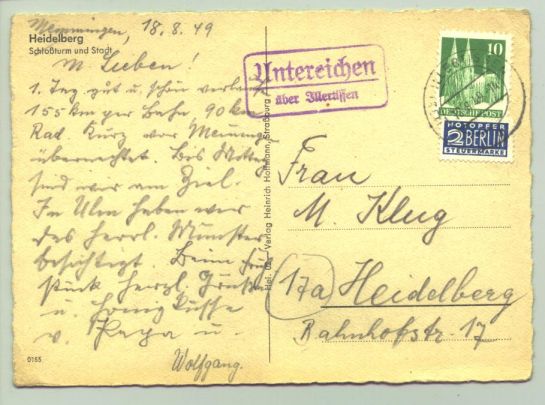 Memmingen, 18.8.49
Heidelberg
Schloßturm und Stadt
M. Lieben!
1. Tag gut u. schön verlaufen
155 km per Bahn, 90 km
Rad. Kurz vor Memmingen
übernachtet. Bis Mittag
sind wir am Ziel.
In Ulm haben wir
das herrl. Münster
besichtigt. Beim Früh-
stück herzl. Grüße
u. Küsse
v. Papa u.
Wolfgang.
0165
Verlag Heinrich Hoffmann, Straßburg
Untereichen
über Illertissen
10
DEUTSCHE POST
NOTOPFER
2 BERLIN
STEUERMARKE
Frau
M. Klug
(17a) Heidelberg
Bahnhofstr. 17